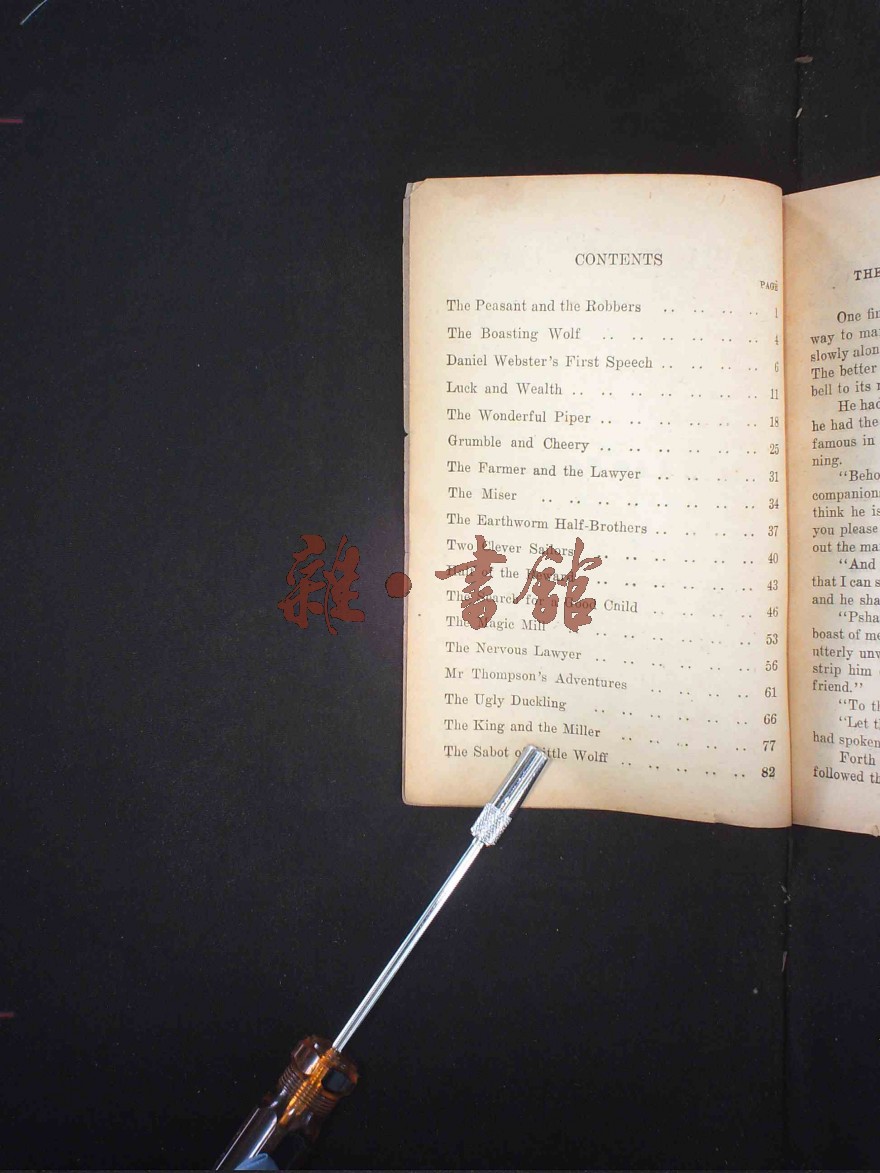 CONTENTS
PAGE
The Peasant and the Robbers .. .. .. .. 1
The Boasting Wolf .. .. .. .. .. .. 4
Daniel Webster's First Speech .. .. .. .. 6
Luck and Wealth .. .. .. .. .. .. .. 11
The Wonderful Piper .. .. .. .. .. .. 18
Grumble and Cheery .. .. .. .. .. .. 25
The Farmer and the Lawyer .. .. .. .. 31
The Miser .. .. .. .. .. .. .. 34
The Earthworm Half-Brothers .. .. .. .. 37
Two Clever Sailors .. .. .. .. .. 40
Half of the Reward .. .. .. .. .. 43
The Search for a Good Child .. .. .. .. 46
The Magic Mill .. .. .. .. .. 53
The Nervous Lawyer .. .. .. .. .. 56
Mr Thompson's Adventures .. .. .. .. 61
The Ugly Duckling .. .. .. .. .. 66
The King and the Miller .. .. .. .. .. 77
The Sabot of Little Wolff .. .. .. .. .. 82
雜·書館
THE
One
way to
slowly
The better
bell to its
He had
he had the
famous in
ning.
think he is
you please
out the
"And
that I can
and he
boast of
utterly
strip him
friend."
"To
"Let
had spoken
Forth
followed